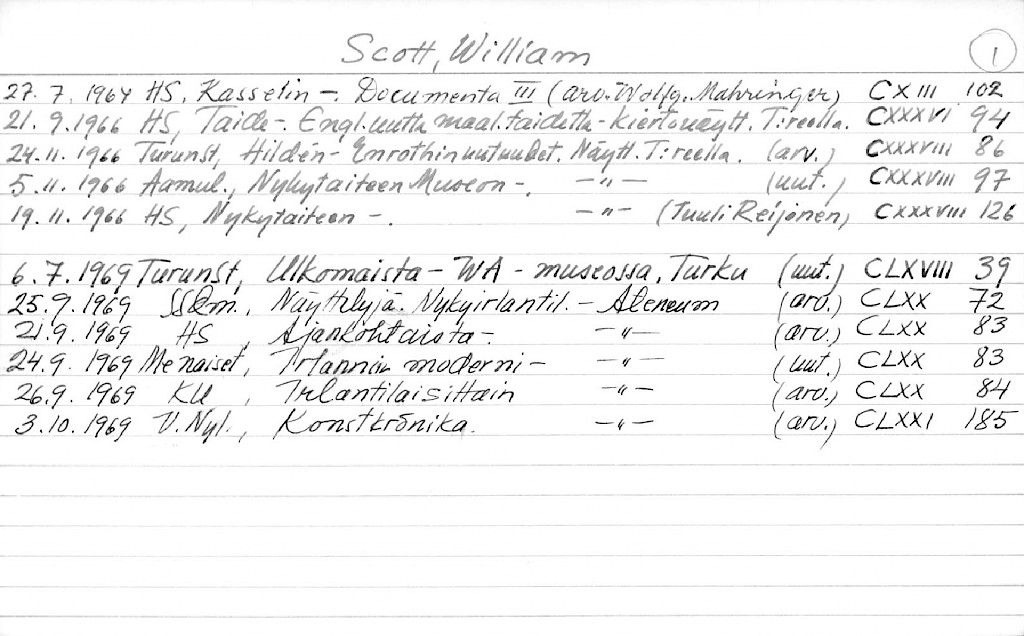 Scott, William 1
27. 7. 1964 HS, Kasselin -. Documenta III (arv. Wolfg. Mahringer) CXIII 102
21. 9. 1966 HS, Taide -. Engl. uutta maal.taidetta - kiertonäytt. T:reella. CXXXVI 94
24. 11. 1966 Turunst, Hildén - Enrothin uutuudet. Näytt. T:reella. (arv.) CXXXVIII 86
5. 11. 1966 Aamul., Nykytaiteen Museon -. -"- (uut.) CXXXVIII 97
19. 11. 1966 HS, Nykytaiteen -. -"- (Tuuli Reijonen) CXXXVIII 126
6. 7. 1969 Turunst, Ulkomaista - WA - museossa, Turku (uut.) CLXVIII 39
25. 9. 1969 Näyttelyjä. Nykyirlantil. - Ateneum (arv.) CLXX 72
21. 9. 1969 HS, Ajankohtaista - -"- (arv.) CLXX 83
24. 9. 1969 Me naiset, Irlannin moderni - -"- (uut.) CLXX 83
26. 9. 1969 KU, Irlantilaisittain -"- (arv.) CLXX 84
3. 10. 1969 V. Nyl., Konstkrönika. -"- (arv.) CLXXI 185